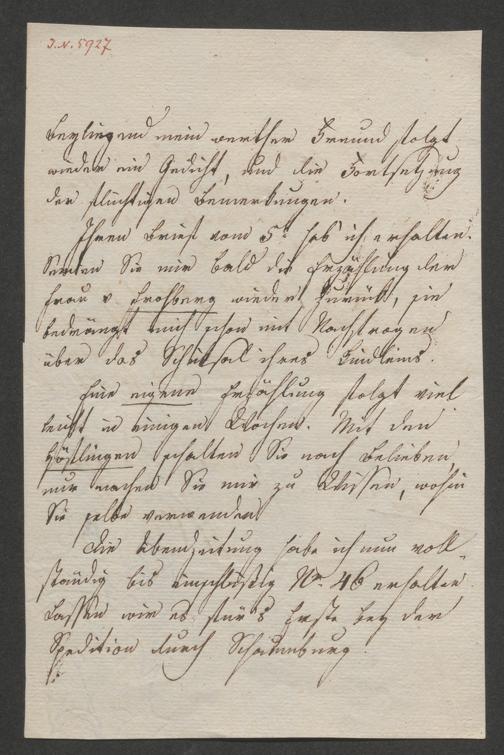 J.N. 5927
Beyliegend mein werther Freund folgt
wieder ein Gedicht, und die Fortsetzung
der flüchtigen Bemerkungen.
Ihren Brief vom 5t hab ich erhalten.
Senden Sie mir bald die Erzählung der
Frau v Frohberg wieder zurück, sie
bedrängt mich schon mit Nachfragen
über das Schicksal ihres Kindleins.
Eine eigene Erzählung folgt viel
leicht in einigen Wochen. Mit den
schalten Sie nach Belieben
nur machen Sie mir zu Wissen, wohin
Sie selbe verwenden
Die Abendzeitung habe ich nun voll-
ständig bis einschlüßig No 46 erhalten.
Lassen wir es für's Erste bey der
Spedition durch Schaumburg.